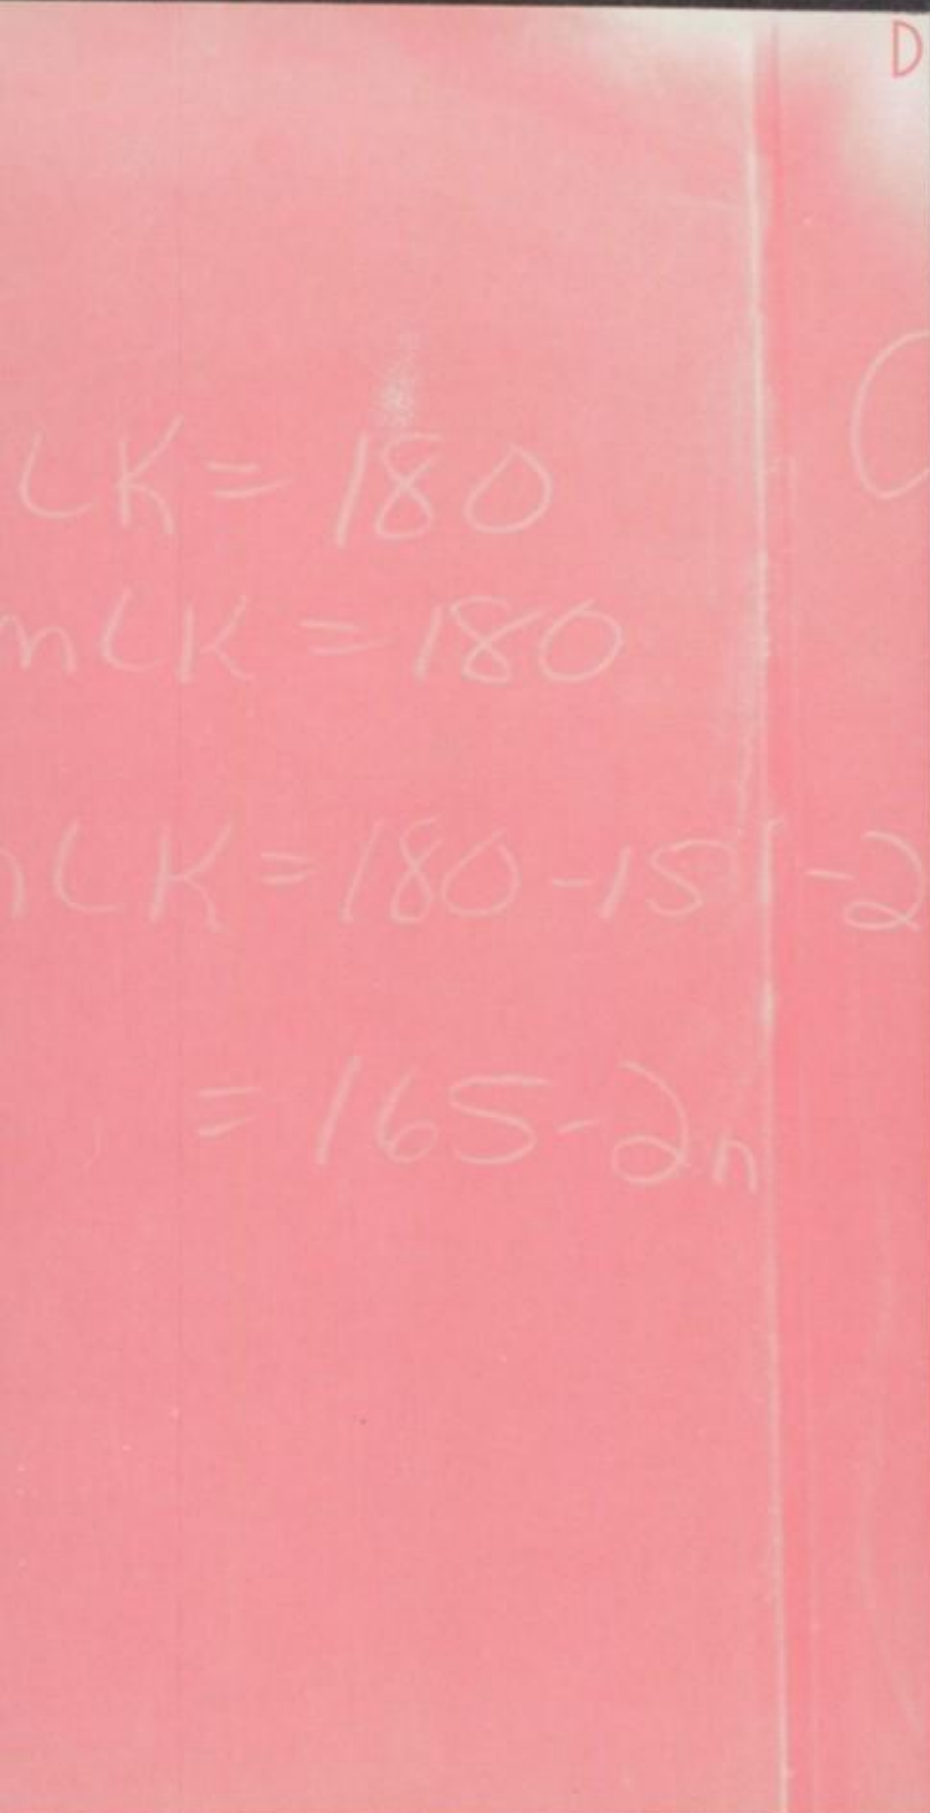 D
∠K = 180
m∠K = 180
m∠K = 180 - 15 - 2
= 165 - 2n